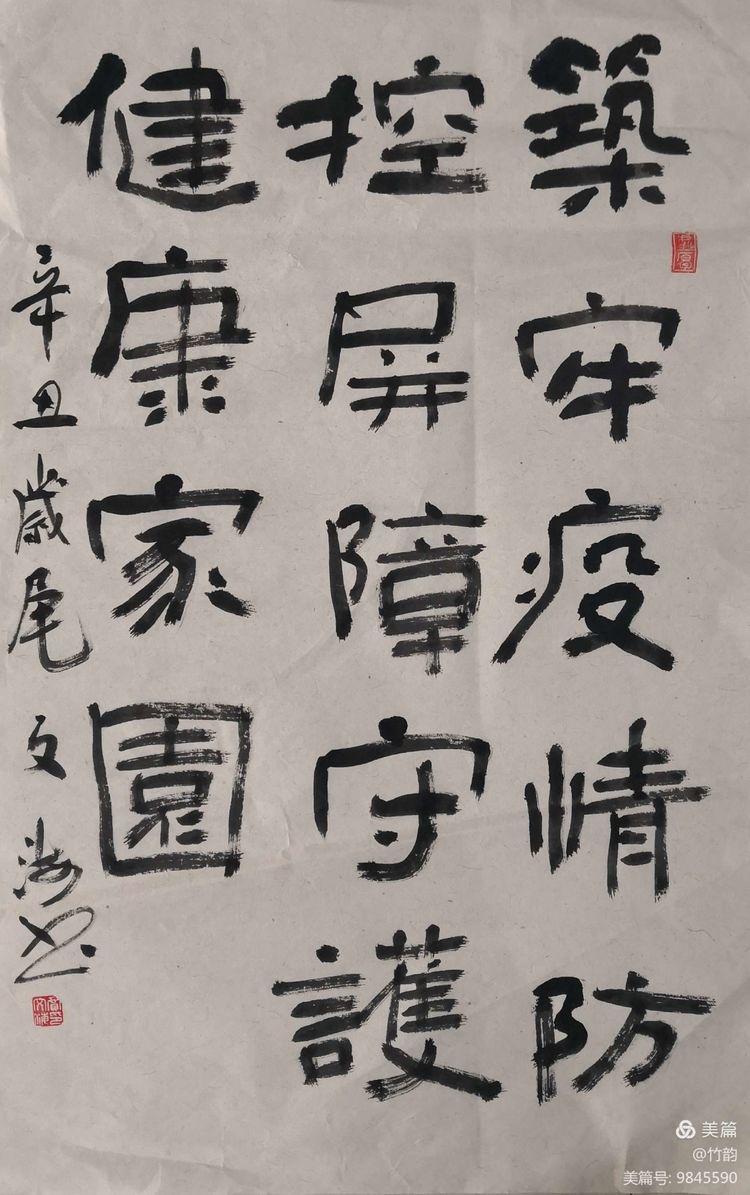 築牢疫情防
控屏障守護
健康家園
辛丑歲尾文海书
美篇
@竹韵
美篇号: 9845590